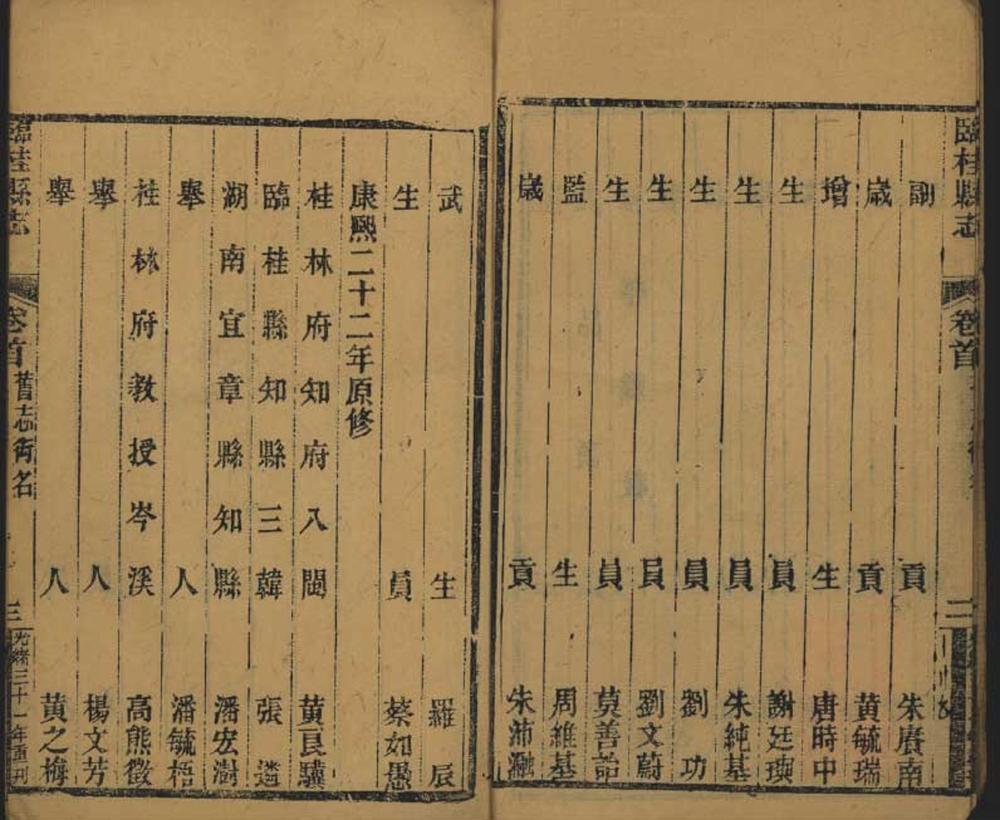 臨桂縣志 卷首 二
副貢 朱賡南
歲貢 黃毓瑞
增生 唐時中
生員 謝廷
生員 朱純基
生員 劉功
生員 劉文蔚
生員 莫善詒
監生 周維基
歲貢 朱沛
武生 羅辰
生員 蔡如愚
康熙二十二年原修
桂林府知府入閩 黃良驥
臨桂縣知縣三韓 張遴
湖南宜章縣知縣 潘宏澍
舉人 潘毓梧
桂林府教授岑溪 高熊徵
舉人 楊文芳
舉人 黃之梅
臨桂縣志 卷首 舊志銜名 三 光緒三十一年重刊